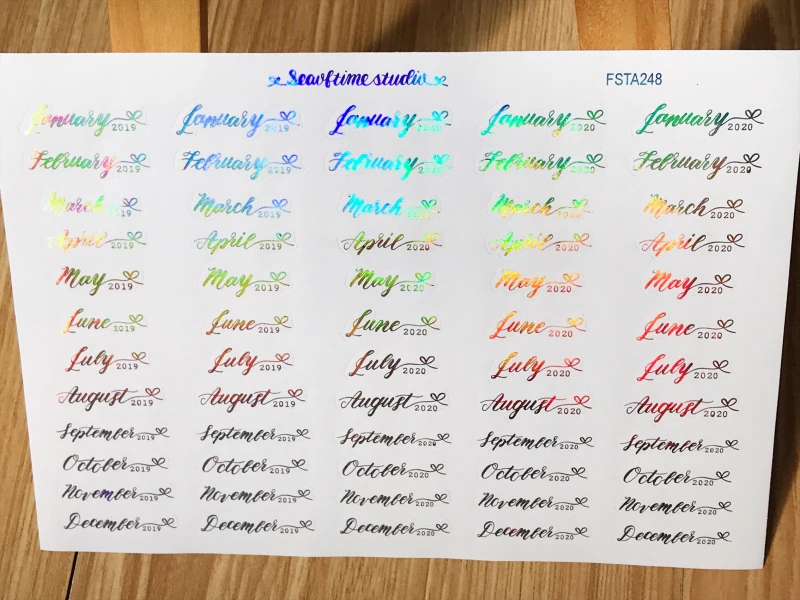 Seaoftime studio FSTA248
January 2019 January 2019 January 2020 January 2020 January 2020
February 2019 February 2019 February 2020 February 2020 February 2020
March 2019 March 2019 March 2020 March 2020 March 2020
April 2019 April 2019 April 2020 April 2020 April 2020
May 2019 May 2019 May 2020 May 2020 May 2020
June 2019 June 2019 June 2020 June 2020 June 2020
July 2019 July 2019 July 2020 July 2020 July 2020
August 2019 August 2019 August 2020 August 2020 August 2020
September 2019 September 2019 September 2020 September 2020 September 2020
October 2019 October 2019 October 2020 October 2020 October 2020
November 2019 November 2019 November 2020 November 2020 November 2020
December 2019 December 2019 December 2020 December 2020 December 2020